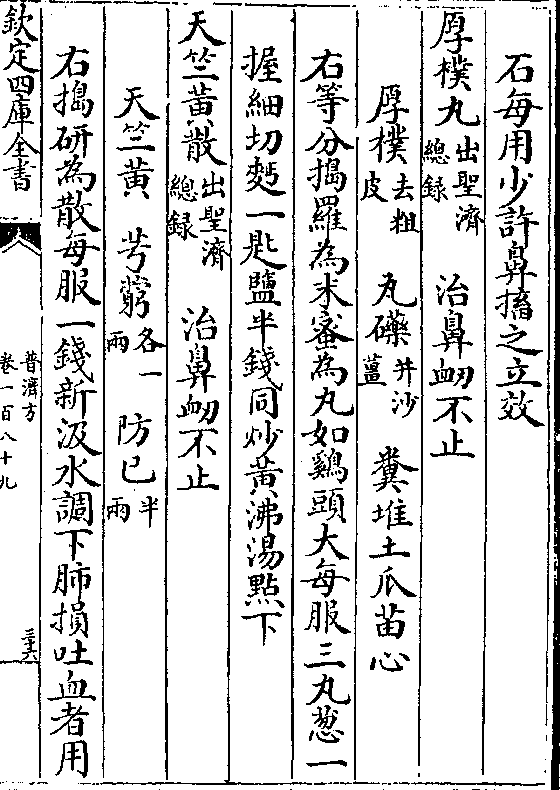 石每用少許鼻搐之立效
厚樸丸出聖濟總録　治鼻衂不止
厚樸去粗皮　丸礫并沙薑　糞堆土瓜苗心
右等分搗羅為末蜜為丸如鷄頭大每服三丸葱一
握細切麫一匙鹽半錢同炒黄沸湯點下
天竺黄散出聖濟總録　治鼻衂不止
天竺黄　芎藭各一兩　防已半兩
右搗研為散每服一錢新汲水調下肺損吐血者用
欽定四庫全書
普濟方
卷一百八十九
三十六